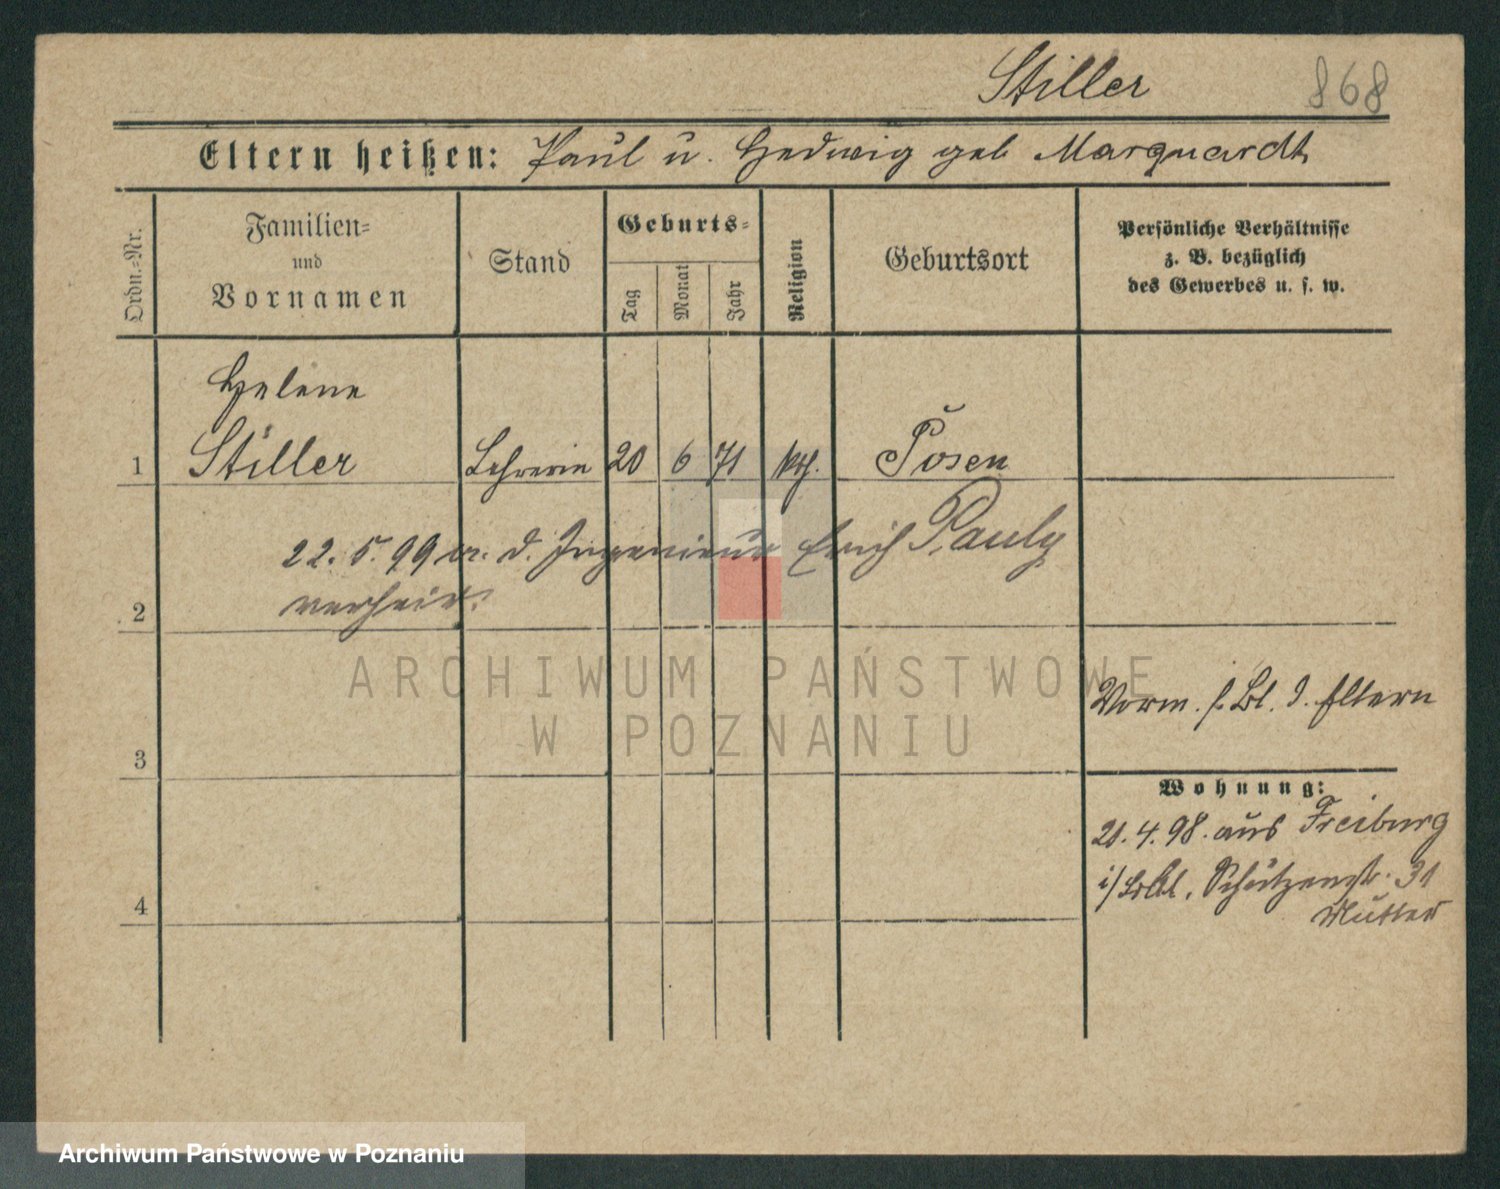 Stiller 868
Eltern heißen: Paul u. Hedwig geb Marquardt
Ordn.-Nr.
Familien-
und
Vornamen
Stand
Geburts-
Tag
Monat
Jahr
Religion
Geburtsort
Persönliche Verhältnisse
z. B. bezüglich
des Gewerbes u. s. w.
Helene
1 Stiller Lehrerin 20 6 71 Posen
22. 5. 99 m. d. Ingenieur Erich Pauly
2 verheir.
ARCHIWUM PAŃSTWOWE
W POZNANIU
Vorm. s. Bl. d. Eltern
3
Wohnung:
21. 4. 98. aus Freiburg
i/ Schützenstr. 31
Mutter
4
Archiwum Państwowe w Poznaniu